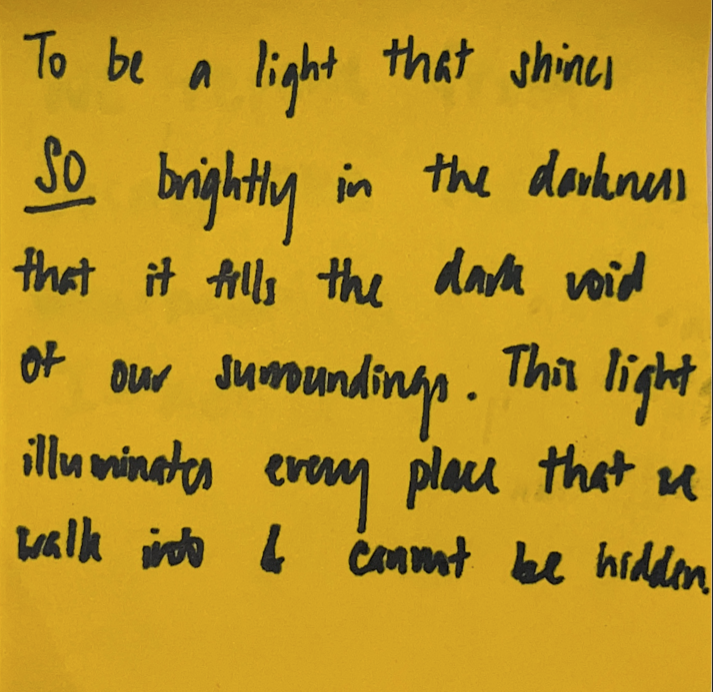 To be a light that shines
SO brightly in the darkness
that it fills the dark void
of our surroundings. This light
illuminates every place that we
walk into & cannot be hidden.